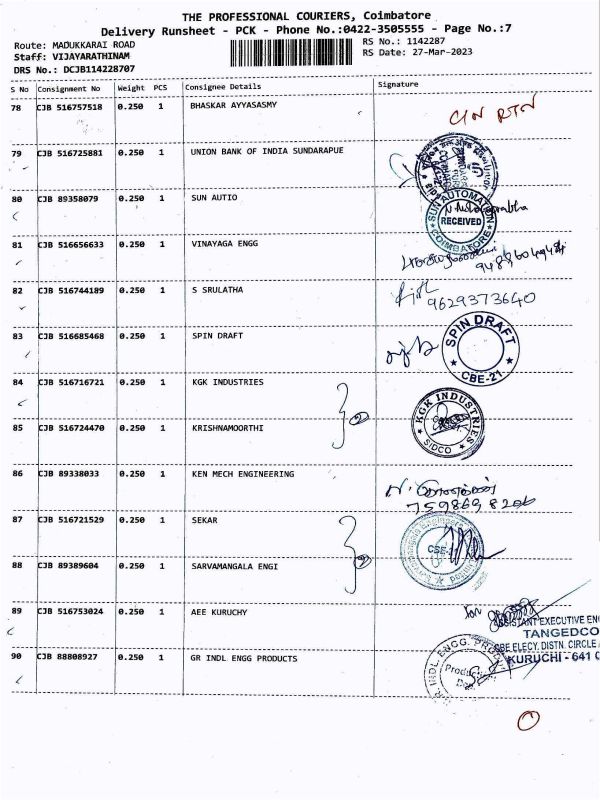 THE PROFESSIONAL COURIERS, Coimbatore
Delivery Runsheet - PCK - Phone No.:0422-3505555 - Page No.:7
Route: MADUKKARAI ROAD
Staff: VIJAYARATHINAM
DRS No.: DCJB114228707
RS No.: 1142287
RS Date: 27-Mar-2023
S No Consignment No Weight PCS Consignee Details Signature
78 CJB 516757518 0.250 1 BHASKAR AYYASASMY
C/N RTN
79 CJB 516725881 0.250 1 UNION BANK OF INDIA SUNDARAPUE
80 CJB 89358079 0.250 1 SUN AUTIO
SUN AUTOMATION
RECEIVED
COIMBATORE
81 CJB 516656633 0.250 1 VINAYAGA ENGG
82 CJB 516744189 0.250 1 S SRULATHA
9629373640
83 CJB 516685468 0.250 1 SPIN DRAFT
SPIN DRAFT
CBE-21
84 CJB 516716721 0.250 1 KGK INDUSTRIES
KGK INDUSTRIES
SIDCO
2
85 CJB 516724470 0.250 1 KRISHNAMOORTHI
86 CJB 89338033 0.250 1 KEN MECH ENGINEERING
7598698206
87 CJB 516721529 0.250 1 SEKAR
2
88 CJB 89389604 0.250 1 SARVAMANGALA ENGI
89 CJB 516753024 0.250 1 AEE KURUCHY
for
ASSISTANT EXECUTIVE EN
TANGEDCO
CBE ELECY. DISTN. CIRCLE
KURUCHI - 641 0
90 CJB 88808927 0.250 1 GR INDL ENGG PRODUCTS
G.R. INDL. ENGG. PROD